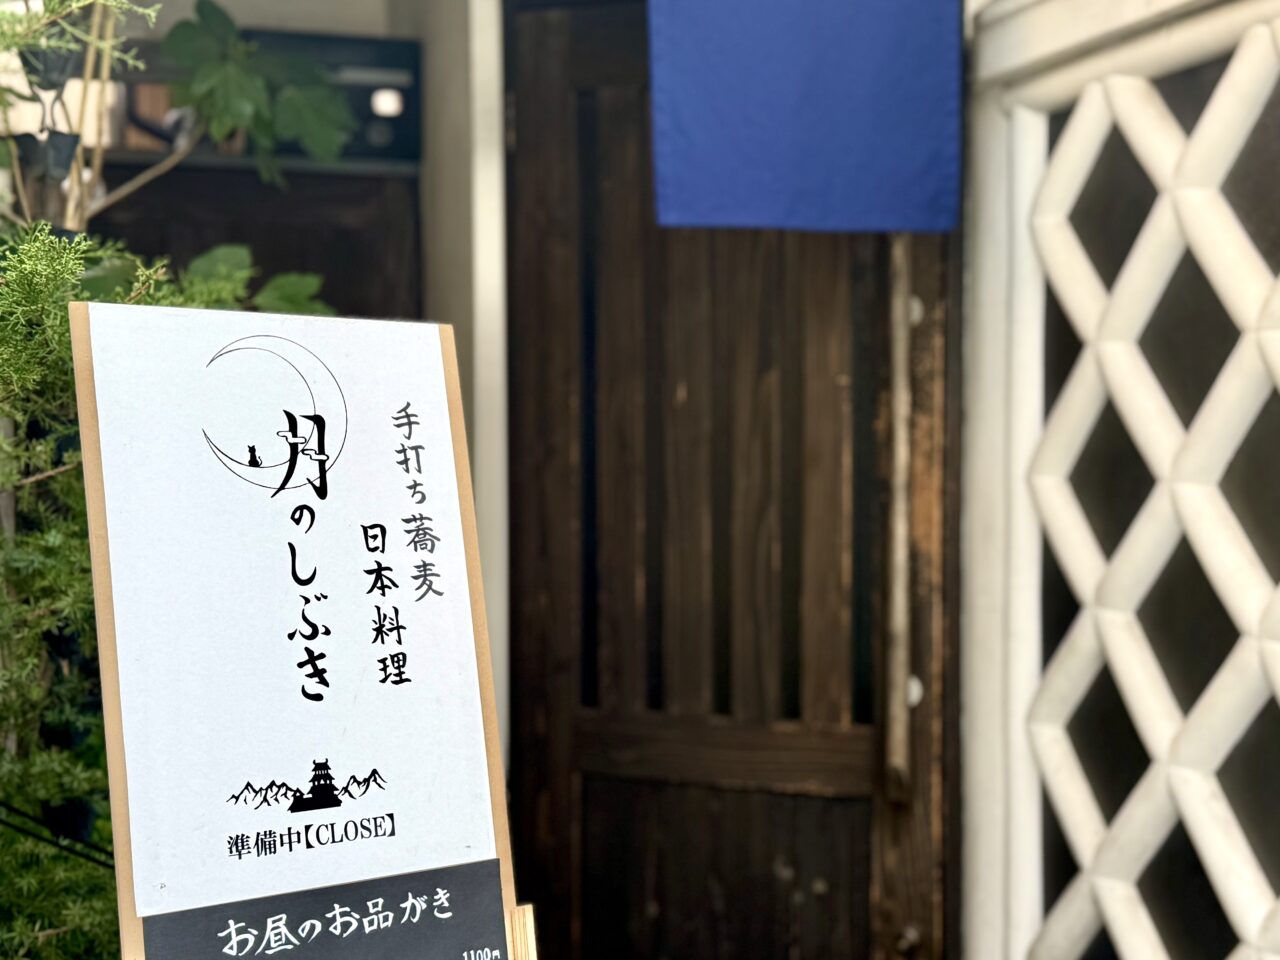 手打ち蕎麦
日本料理
月のしぶき
準備中【CLOSE】
お昼のお品がき
1100円